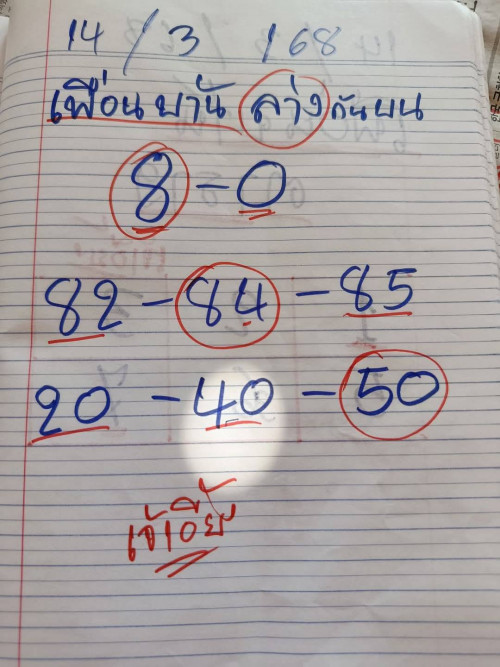 14/3/68
เพื่อนบ้าน ล่างกันบน
8-0
82-84-85
20-40-50